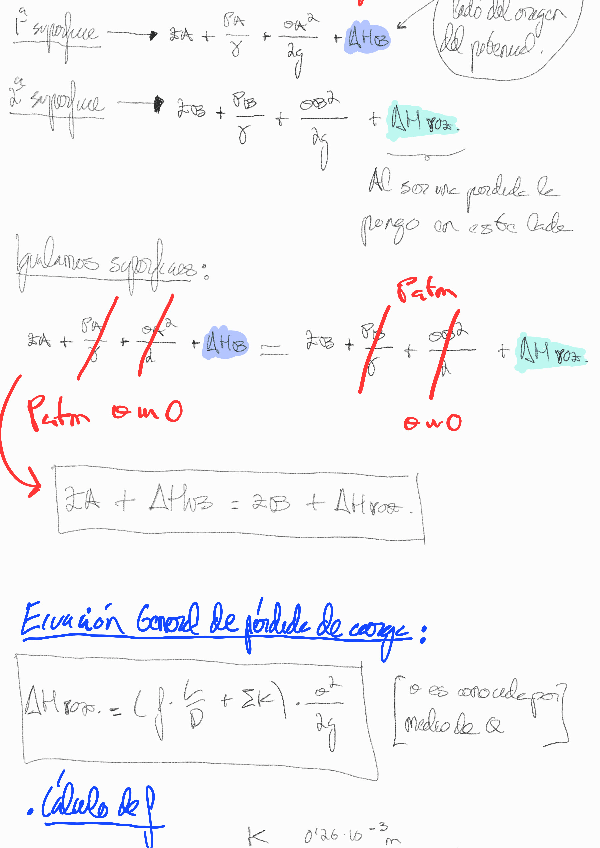 lado del origen
del potencial.
1ª superficie → ZA + PA/γ + vA²/2g + ΔHB
2ª superficie → ZB + PB/γ + vB²/2g + ΔHroz.
Al ser una perdida la
pongo en este lado
Igualamos superficies:
Patm
ZA + PA/γ + vA²/2 + ΔHB = ZB + PB/γ + vB²/2 + ΔHroz.
Patm v ≈ 0
v ≈ 0
ZA + ΔHB = ZB + ΔHroz.
Ecuación General de pérdida de carga:
ΔHroz. = (f · L/D + ΣK) · v²/2g
[v es conocida por
medio de Q]
· Cálculo de f
K 0'26·10⁻³ m